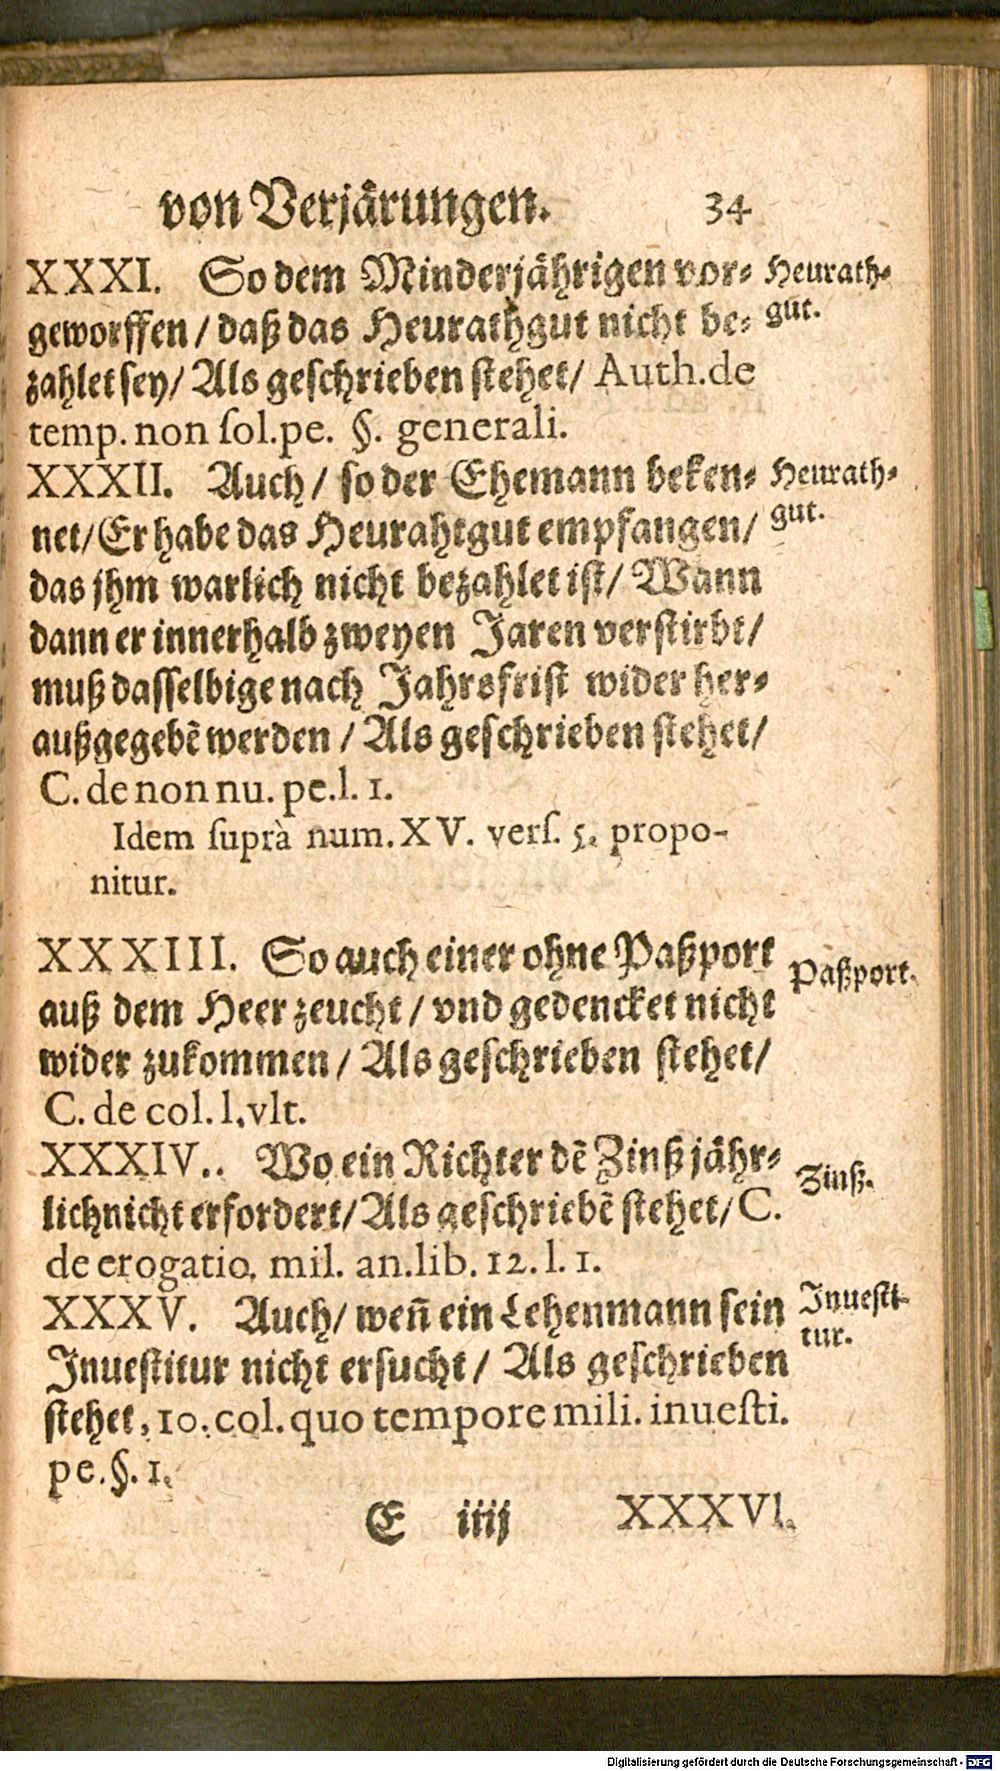 von Verjärungen. 34
XXXI. So dem Minderjährigen vor-
Heurath-
geworffen / daß das Heurathgut nicht be-
gut.
zahlet sey / Als geschrieben stehet / Auth. de
temp. non sol. pe. §. generali.
XXXII. Auch / so der Ehemann beken-
Heurath-
net / Er habe das Heurahtgut empfangen /
gut.
das jhm warlich nicht bezahlet ist / Wann
dann er innerhalb zweyen Jaren verstirbt /
muß dasselbige nach Jahrsfrist wider her-
außgegebē werden / Als geschrieben stehet /
C. de non nu. pe. l. 1.
Idem suprà num. XV. vers. 5. propo-
nitur.
XXXIII. So auch einer ohne Paßport
Paßport.
auß dem Heer zeucht / vnd gedencket nicht
wider zukommen / Als geschrieben stehet /
C. de col. l. vlt.
XXXIV.. Wo ein Richter dē Zinß jähr-
Zinß.
lich nicht erfordert / Als geschriebē stehet / C.
de erogatio. mil. an. lib. 12. l. 1.
XXXV. Auch / weñ ein Lehenmann sein
Inuesti-
Inuestitur nicht ersucht / Als geschrieben
tur.
stehet, 10. col. quo tempore mili. inuesti.
pe. §. 1.
E iiij XXXVI.
Digitalisierung gefördert durch die Deutsche Forschungsgemeinschaft - DFG